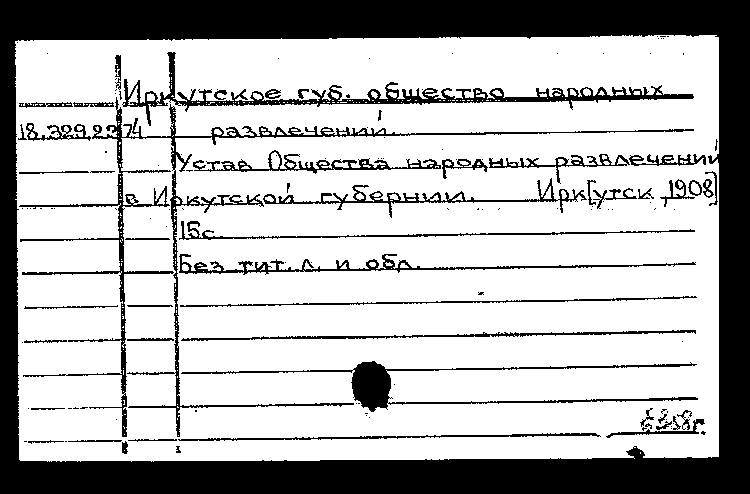 Иркутское губ. общество народных
18.329.2374 развлечений.
Устав Общества народных развлечений
в Иркутской губернии. Ирк[утск, 1908]
15с.
Без тит. л. и обл.